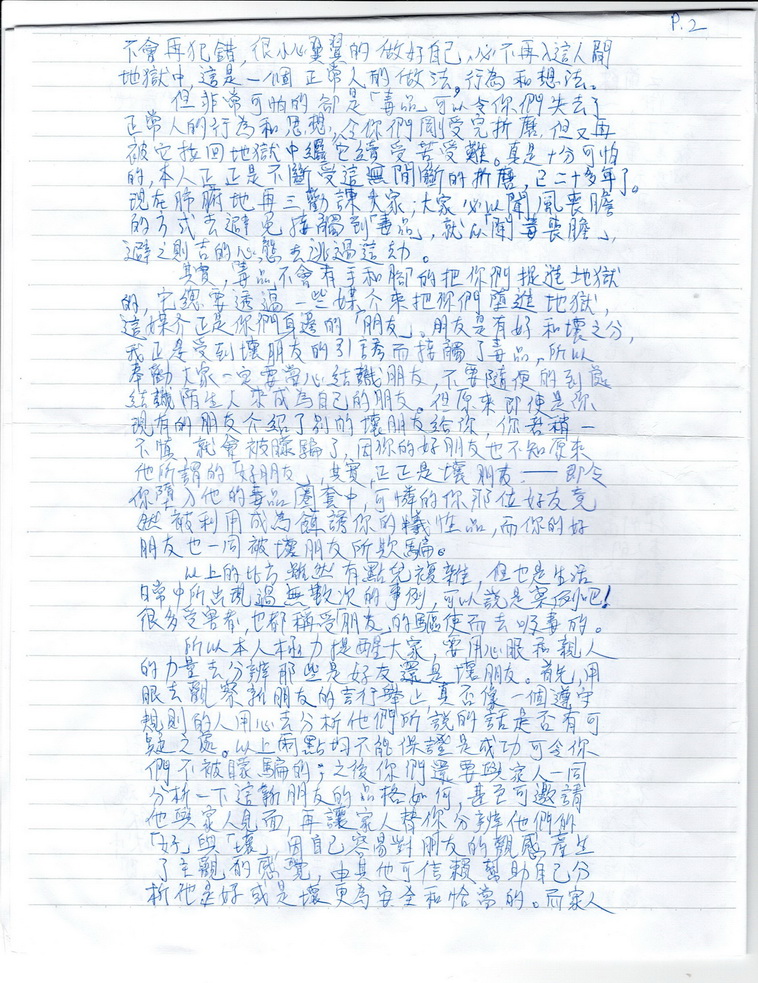 P.2
不會再犯錯，很小心翼翼的做好自己，必不再入這人間
地獄中，這是一個正常人的做法，行為和想法。
但非常可怕的卻是「毒品」可以令你們失去了
正常人的行為和思想，令你們剛受完折磨，但又再
被它拉回地獄中繼它續受苦受難。真是十分可怕
的，本人正正是不斷受這無間斷的折磨，已二十多年了。
現在肺腑地再三勸諫大家：大家必以聞風喪膽
的方式去避免接觸到「毒品」，就以「聞毒喪膽」，
避之則吉的心態去逃過這劫。
其實，毒品不會有手和腳的把你們捉進地獄
的，它總要透過一些媒介來把你們墮進地獄，
這媒介正是你們身邊的「朋友」。朋友是有好和壞之分，
我正是受到壞朋友的引誘而接觸了毒品，所以
奉勸大家一定要當心結識朋友，不要隨便的到處
結識陌生人來成為自己的朋友。但原來即使是你
現有的朋友介紹了別的壞朋友給你，你若稍一
不慎，就會被矇騙了，因你的好朋友也不知原來
他所謂的「好朋友」，其實，正正是壞朋友——即令
你墮入他的毒品圈套中，可憐的你那位好友竟
然被利用成為餌誘你的犧牲品，而你的好
朋友也一同被壞朋友所欺騙。
以上的比方雖然有點兒複雜，但也是生活
日常中所出現過無數次的事例，可以說是案例吧！
很多受害者，也都稱受「朋友」的驅使而去吸毒的。
所以本人極力提醒大家，要用心眼和親人
的力量去分辨那些是好友還是壞朋友。首先，用
眼去觀察新朋友的言行舉止，真否像一個遵守
規則的人用心去分析他們所說的話是否有可
疑之處。以上兩點均不能保證是成功可令你
們不被矇騙的；之後你們還要與家人一同
分析一下這新朋友的品格如何，甚至可邀請
他與家人見面，再讓家人替你分辨他們的
「好」與「壞」，因自己容易對朋友的觀感產生
了主觀的感覺，由其他可信賴幫助自己分
析他是好或是壞更為安全和恰當的。而家人